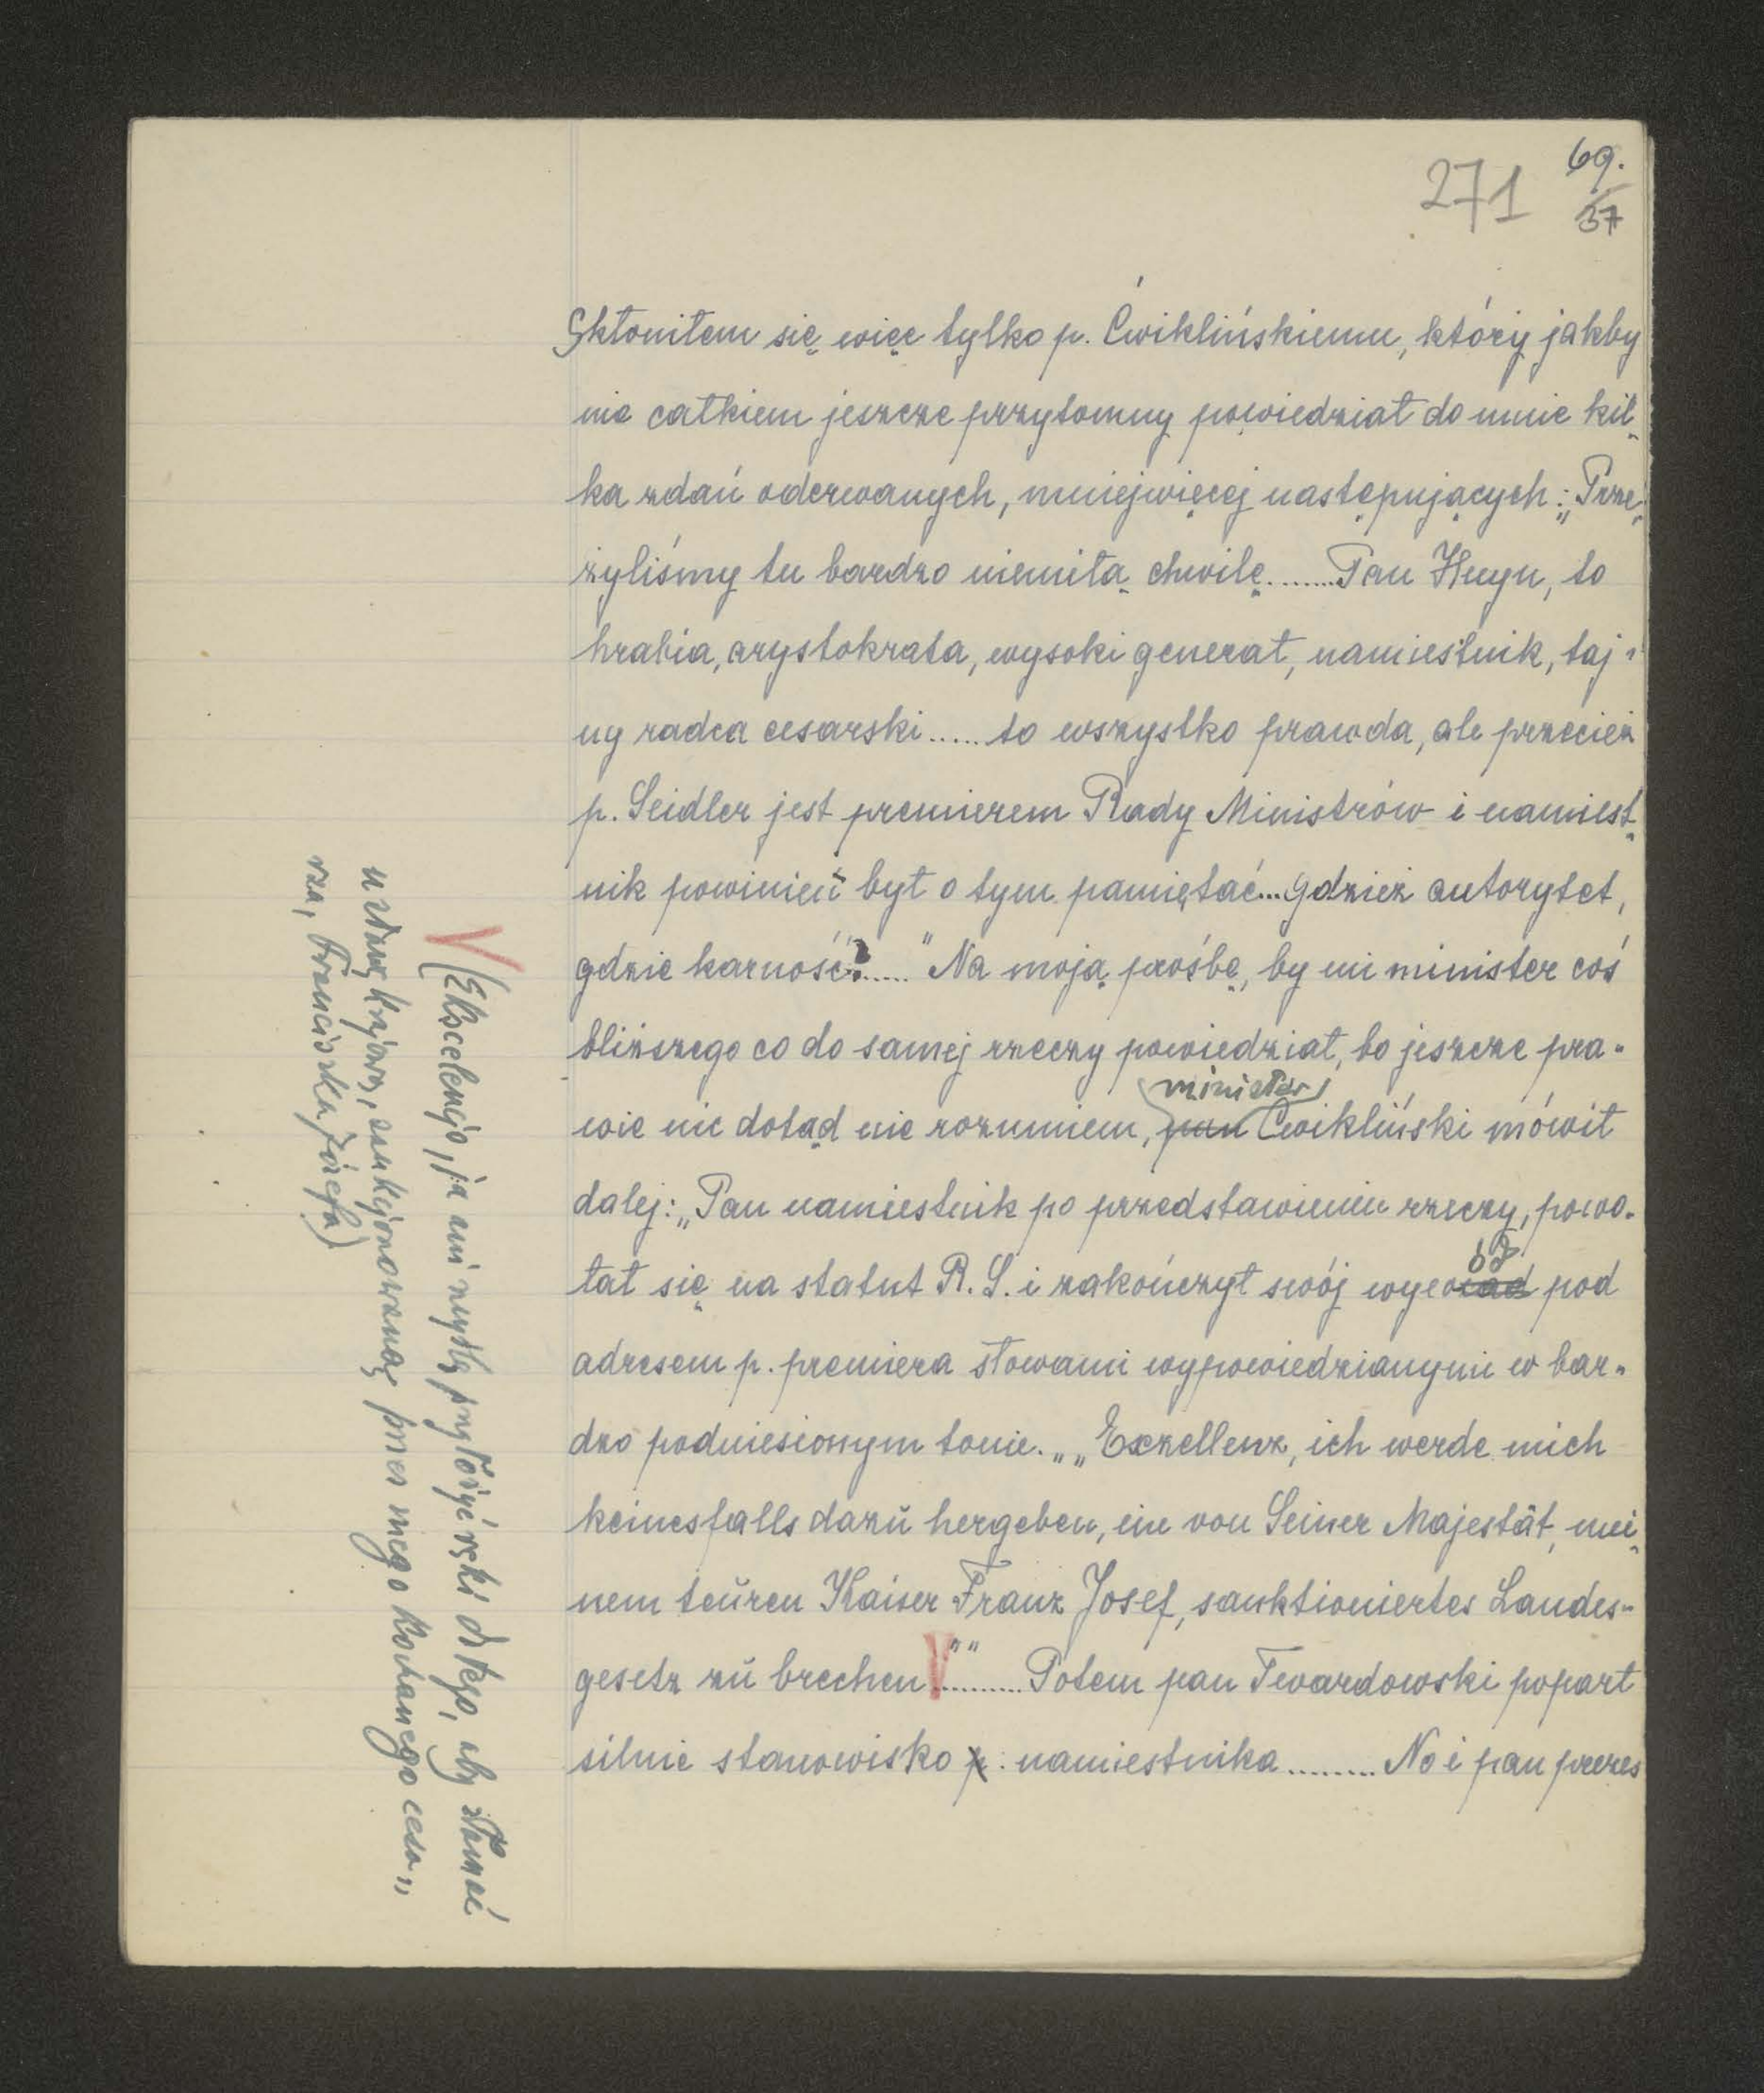 271 69.
37
Skłoniłem się więc tylko p. Ćwiklińskiemu, który jakby
nie całkiem jeszcze przytomny powiedział do mnie kil-
ka zdań oderwanych, mniejwięcej następujących: „Prze-
żyliśmy tu bardzo niemiłą chwilę........Pan Huyn, to
hrabia, arystokrata, wysoki generał, namiestnik, taj-
ny radca cesarski...... to wszystko prawda, ale przecież
p. Seidler jest premierem Rady Ministrów i namiest-
nik powinien był o tym pamiętać...gdzież autorytet,
gdzie karność?......" Na moją prośbę, by mi minister coś
bliższego co do samej rzeczy powiedział, bo jeszcze pra-
wie nic dotąd nie rozumiem, pan minister Ćwikliński mówił
dalej: „Pan namiestnik po przedstawieniu rzeczy, powo-
łał się na statut R. S. i zakończył swój wywód pod
adresem p. premiera słowami wypowiedzianymi w bar-
dzo podniesionym tonie. „„Exzellenz, ich werde mich
keinesfalls dazŭ hergeben, ein von Seiner Majestät, mei-
nem teŭren Kaiser Franz Josef, sanktioniertes Landes-
gesetz zŭ brechen V""......... Potem pan Twardowski poparł
silnie stanowisko p. namiestnika ......... No i pan prezes
V (Ekscelencjo, ja ani myślę przyłożyć ręki do tego, aby złamać
ustawę krajową, sankcjonowaną przez mego kochanego cesa-
rza, Franciszka Józefa)